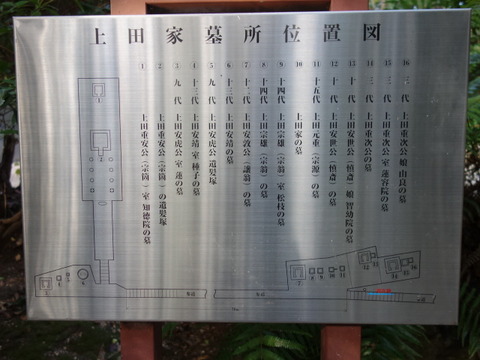 上田家墓所位置図
① 上田重安公(宗箇)室 知徳院の墓
② 上田重安公(宗箇)の遺髪塚
③ 九代 上田安虎公 室 蓮の墓
④ 十三代 上田安靖 室 種子の墓
⑤ 九代 上田安虎公 遺髪塚
⑥ 十三代 上田安靖の墓
⑦ 十二代 上田安敦公(譲翁)の墓
⑧ 十四代 上田宗雄(宗翁)の墓
⑨ 十四代 上田宗雄(宗翁)室 松枝の墓
⑩ 上田家の墓
⑪ 十五代 上田元重(宗源)の墓
⑫ 十代 上田安世公(慎斎)の墓
⑬ 十代 上田安世公(慎斎)娘 智幼院の墓
⑭ 三代 上田重次公の墓
⑮ 三代 上田重次公 室 蓮容院の墓
⑯ 三代 上田重次公 娘 由良の墓